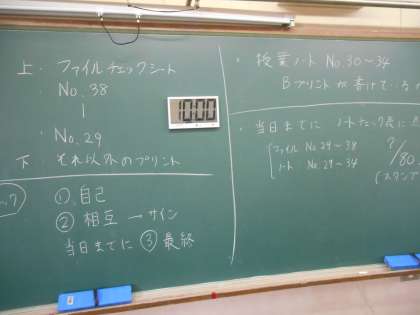 上. ファイルチェックシート
No. 38
|
No. 29
下. それ以外のプリント
ック
① 自己
② 相互 → サイン
当日までに ③ 最終
10:00
・授業ノート No.30〜34
Bプリントが書けている
・当日までに ノートチェック表に
ファイル No.29〜38
ノート No.29〜34
?/80
(スタンプ